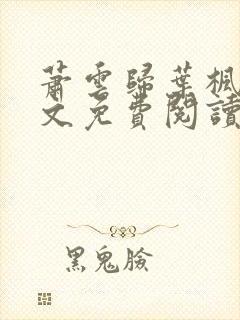 蕭雲歸葉楓
文免費閱讀
黑鬼臉